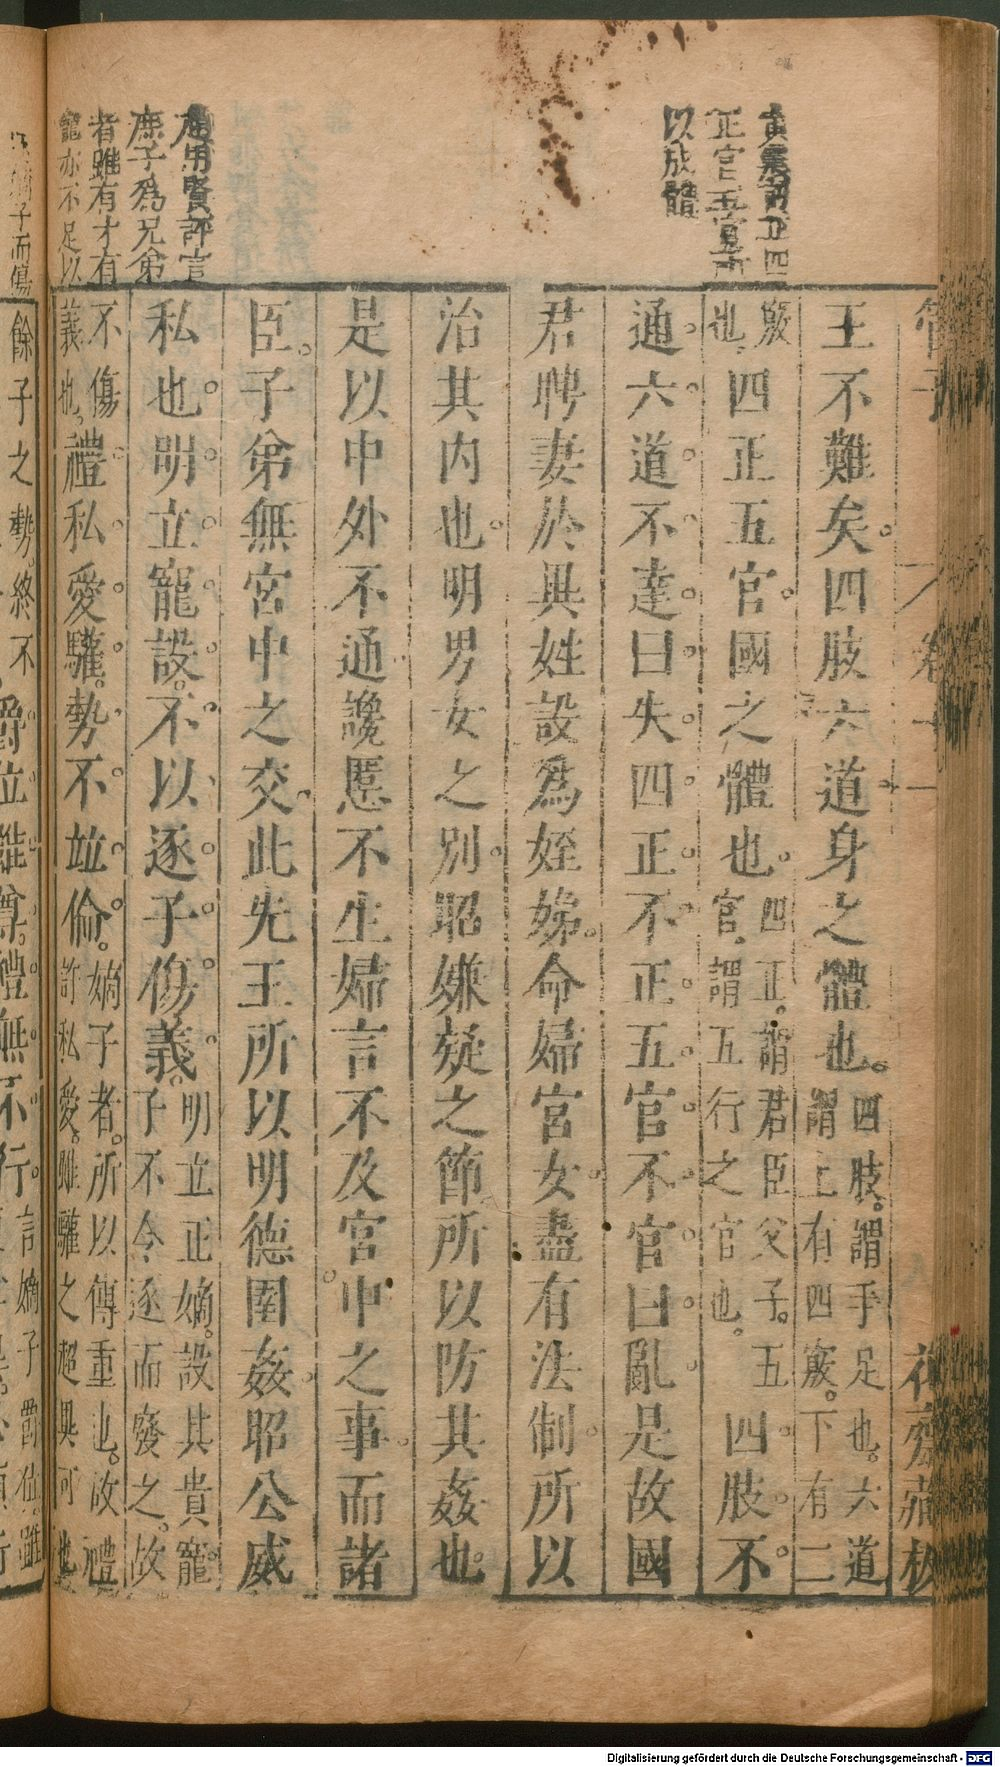 黃震評四
正官五官所
以成體
趙用賢評言
庶子為兄弟
者雖有才有
寵亦不足以
管子
卷十一
花齋藏板
王不難矣。四肢六道身之體也。四肢。謂手足也。六道
謂上有四竅。下有二
竅也。四正五官。國之體也。四正。謂君臣父子。五官。謂五行之官也。四肢不
通。六道不達曰失。四正不正。五官不官曰亂。是故國
君聘妻於異姓。設為姪娣。命婦宮女。盡有法制。所以
治其內也。明男女之別。昭嫌疑之節。所以防其姦也。
是以中外不通。讒慝不生。婦言不及宮中之事。而諸
臣。子弟無宮中之交。此先王所以明德圉姦。昭公威
私也。明立寵設。不以逐子傷義。明立正嫡。設其貴寵
子不令逐而廢之。故
不傷義也。禮私愛驩。勢不竝倫。嫡子者。所以傳重也。故禮
許私愛。雖驩之超異可也
嫡子而傷
餘子之勢。終不
爵位雖尊。禮無不行。